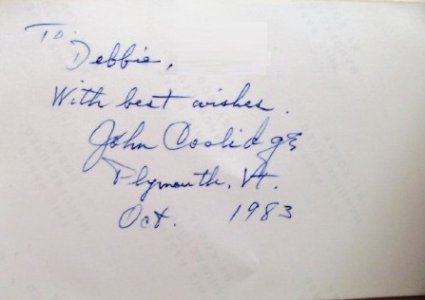 To:
Debbie,
With best wishes.
John Coolidge
Plymouth, Vt.
Oct. 1983